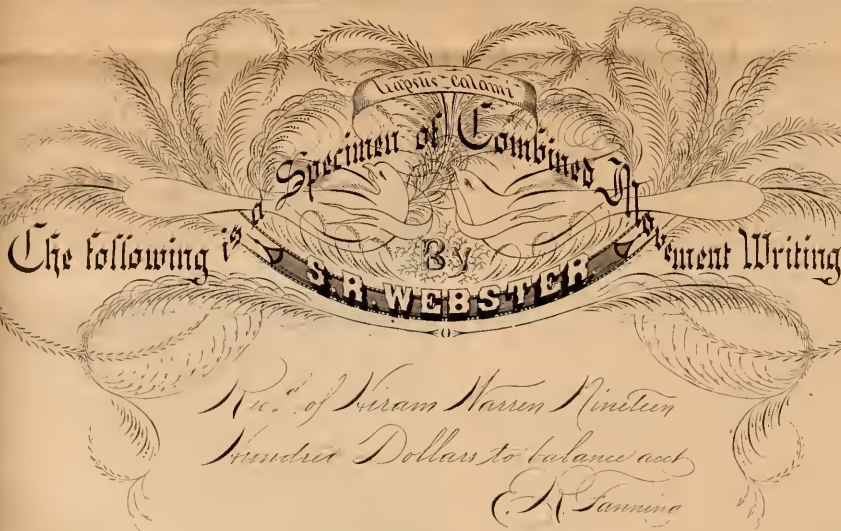 Lapsus-Calami
The following is a Specimen of Combined Movement Writing
By
S. R. WEBSTER.
Rec.d of Hiram Warren Nineteen
Hundred Dollars to balance acct
E. R. Fanning